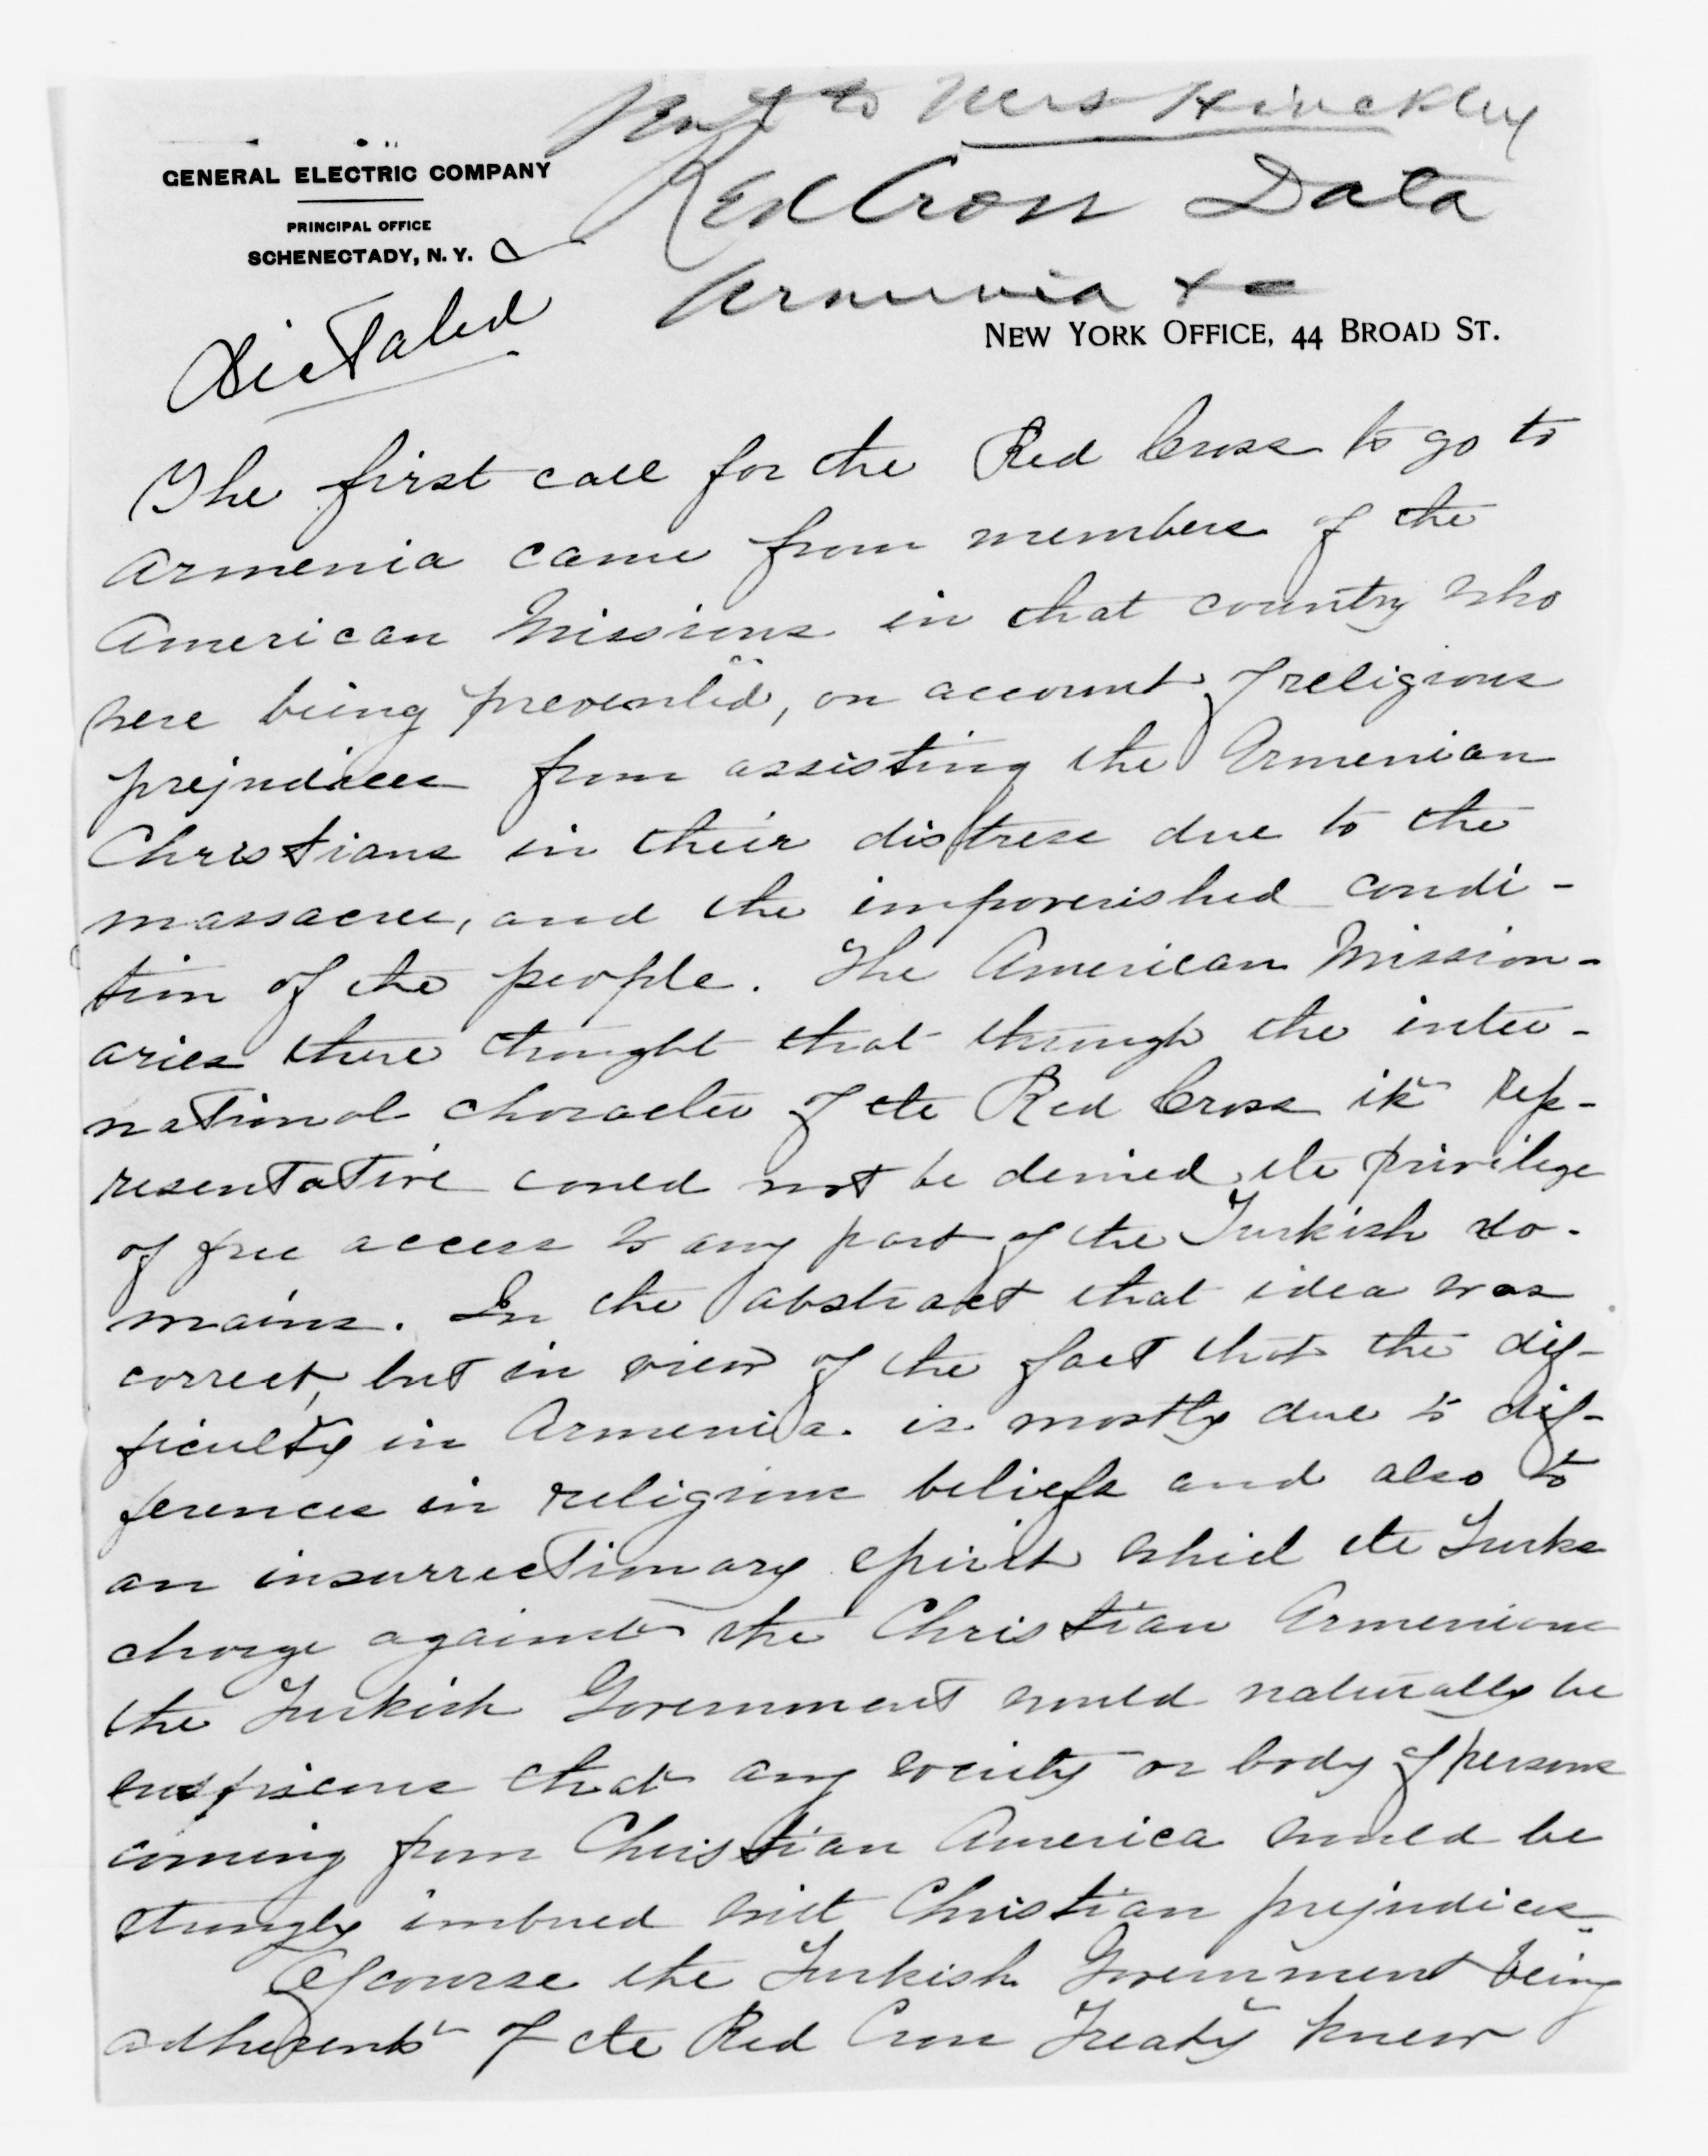 to Mrs Hinckley
GENERAL ELECTRIC COMPANY
Red Cross Data
PRINCIPAL OFFICE
SCHENECTADY, N. Y.
Armenia &c
NEW YORK OFFICE, 44 BROAD ST.
Dictated
The first call for the Red Cross to go to
Armenia came from members of the
American Missions in that country who
were being prevented, on account of religious
prejudices from assisting the Armenian
Christians in their distress due to the
massacres, and the impoverished condi-
tion of the people. The American Mission-
aries there thought that through the inter-
national character of the Red Cross its rep-
resentative could not be denied the privilege
of free access to any part of the Turkish do-
mains. In the abstract that idea was
correct, but in view of the fact that the dif-
ficulty in Armenia is mostly due to dif-
ferences in religious beliefs and also to
an insurrectionary spirit which the Turks
charge against the Christian Armenians
the Turkish Government would naturally be
suspicious that any society or body of persons
coming from Christian America would be
strongly imbued with Christian prejudices.
Of course the Turkish Government being
adherents of the Red Cross Treaty knew